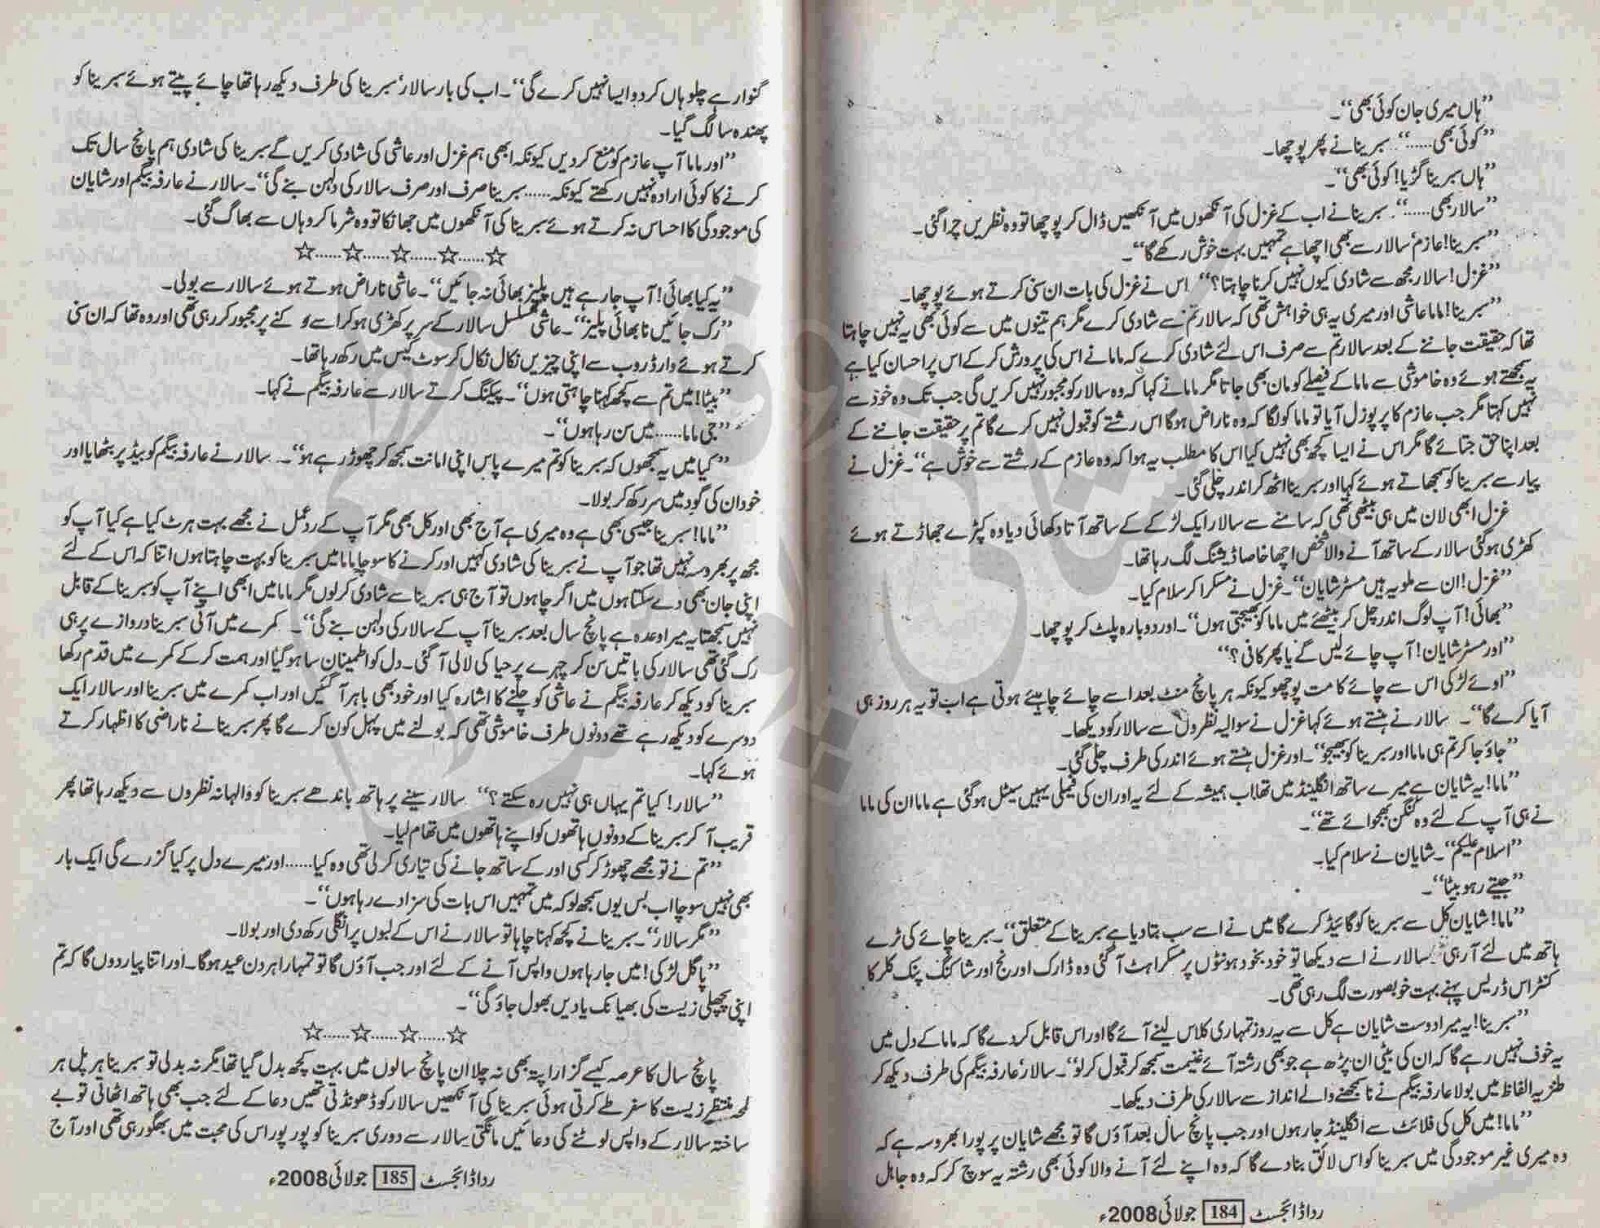 ”ہاں میری جان کوئی بھی“۔
”کوئی بھی......“۔ سبرینا نے پھر پوچھا۔
”ہاں سبرینا گڑیا! کوئی بھی“۔
”سالار بھی......“۔ سبرینا نے اب کے غزل کی آنکھوں میں آنکھیں ڈال کر پوچھا تو وہ نظریں چرا گئی۔
”سبرینا! عازم‘ سالار سے بھی اچھا ہے تمہیں بہت خوش رکھے گا“۔
”غزل! سالار مجھ سے شادی کیوں نہیں کرنا چاہتا؟“ اس نے غزل کی بات ان سنی کرتے ہوئے پوچھا۔
”سبرینا! ماما عاشی اور میری یہ ہی خواہش تھی کہ سالار تم سے شادی کرے مگر ہم تینوں میں سے کوئی بھی یہ نہیں چاہتا
تھا کہ حقیقت جاننے کے بعد سالار تم سے صرف اس لئے شادی کرے کہ ماما نے اس کی پرورش کر کے اس پر احسان کیا ہے
یہ سمجھتے ہوئے وہ خاموشی سے ماما کے فیصلے کو مان بھی جاتا مگر ماما نے کہا کہ وہ سالار کو مجبور نہیں کریں گی جب تک وہ خود سے
نہیں کہتا مگر جب عازم کا پرپوزل آیا تو ماما کو لگا کہ وہ ناراض ہو گا اس رشتے کو قبول نہیں کرے گا تم پر حقیقت جاننے کے
بعد اپنا حق جتائے گا مگر اس نے ایسا کچھ بھی نہیں کیا اس کا مطلب یہ ہوا کہ وہ عازم کے رشتے سے خوش ہے“۔ غزل نے
پیار سے سبرینا کو سمجھاتے ہوئے کہا اور سبرینا اٹھ کر اندر چلی گئی۔
غزل ابھی لان میں ہی بیٹھی تھی کہ سامنے سے سالار ایک لڑکے کے ساتھ آتا دکھائی دیا وہ کپڑے جھاڑتے ہوئے
کھڑی ہو گئی سالار کے ساتھ آنے والا شخص اچھا خاصا ڈیشنگ لگ رہا تھا۔
”غزل! ان سے ملو یہ ہیں مسٹر شایان“۔ غزل نے مسکرا کر سلام کیا۔
”بھائی! آپ لوگ اندر چل کر بیٹھئے میں ماما کو بھیجتی ہوں“۔ اور دوبارہ پلٹ کر پوچھا۔
”اور مسٹر شایان! آپ چائے لیں گے یا پھر کافی؟“
”اوئے لڑکی اس سے چائے کا مت پوچھو کیونکہ ہر پانچ منٹ بعد اسے چائے چاہیئے ہوتی ہے اب تو یہ ہر روز ہی
آیا کرے گا“۔ سالار نے ہنستے ہوئے کہا غزل نے سوالیہ نظروں سے سالار کو دیکھا۔
”جاؤ جا کر تم ہی ماما اور سبرینا کو بھیجو“۔ اور غزل ہنستے ہوئے اندر کی طرف چلی گئی۔
”ماما! یہ شایان ہے میرے ساتھ انگلینڈ میں تھا اب ہمیشہ کے لئے یہ اور ان کی فیملی یہیں سیٹل ہو گئی ہے ماما ان کی ماما
نے ہی آپ کے لئے وہ کنگن بھجوائے تھے“۔
”اسلام علیکم“۔ شایان نے سلام کیا۔
”جیتے رہو بیٹا“۔
”ماما! شایان کل سے سبرینا کو گائیڈ کرے گا میں نے اسے سب بتا دیا ہے سبرینا کے متعلق“۔ سبرینا چائے کی ٹرے
ہاتھ میں لئے آ رہی سالار نے اسے دیکھا تو خود بخود ہونٹوں پر مسکراہٹ آ گئی وہ ڈارک اورنج اور شاکنگ پنک کلر کا
کنٹراس ڈریس پہنے بہت خوبصورت لگ رہی تھی۔
”سبرینا! یہ میرا دوست شایان ہے کل سے یہ روز تمہاری کلاس لینے آئے گا اور اس قابل کر دے گا کہ ماما کے دل میں
یہ خوف نہیں رہے گا کہ ان کی بیٹی ان پڑھ ہے جو بھی رشتہ آئے غنیمت سمجھ کر قبول کر لو“۔ سالار‘ عارفہ بیگم کی طرف دیکھ کر
طنزیہ الفاظ میں بولا عارفہ بیگم نے نا سمجھنے والے انداز سے سالار کی طرف دیکھا۔
”ماما! میں کل کی فلائٹ سے انگلینڈ جا رہا ہوں اور جب پانچ سال بعد آؤں گا تو مجھے شایان پر پورا بھروسہ ہے کہ
وہ میری غیر موجودگی میں سبرینا کو اس لائق بنا دے گا کہ وہ اپنے لئے آنے والا کوئی بھی رشتہ یہ سوچ کر کہ وہ جاہل
ردا ڈائجسٹ 184 جولائی 2008ء
گنوار ہے چلو ہاں کر دو ایسا نہیں کرے گی“۔ اب کی بار سالار‘ سبرینا کی طرف دیکھ رہا تھا چائے پیتے ہوئے سبرینا کو
پھندہ سا لگ گیا۔
”اور ماما آپ عازم کو منع کر دیں کیونکہ ابھی ہم غزل اور عاشی کی شادی کریں گے سبرینا کی شادی ہم پانچ سال تک
کرنے کا کوئی ارادہ نہیں رکھتے کیونکہ...... سبرینا صرف اور صرف سالار کی دلہن بنے گی“۔ سالار نے عارفہ بیگم اور شایان
کی موجودگی کا احساس نہ کرتے ہوئے سبرینا کی آنکھوں میں جھانکا تو وہ شرما کر وہاں سے بھاگ گئی۔
☆......☆......☆......☆......☆
”یہ کیا بھائی! آپ جا رہے ہیں پلیز بھائی نہ جائیں“۔ عاشی ناراض ہوتے ہوئے سالار سے بولی۔
”رک جائیں نا بھائی پلیز“۔ عاشی مسلسل سالار کے سر پر کھڑی ہو کر اسے رکنے پر مجبور کر رہی تھی اور وہ تھا کہ ان سنی
کرتے ہوئے وارڈ روب سے اپنی چیزیں نکال نکال کر سوٹ کیس میں رکھ رہا تھا۔
”بیٹا! میں تم سے کچھ کہنا چاہتی ہوں“۔ پیکنگ کرتے سالار سے عارفہ بیگم نے کہا۔
”جی ماما...... میں سن رہا ہوں“۔
”کیا میں یہ سمجھوں کہ سبرینا کو تم میرے پاس اپنی امانت سمجھ کر چھوڑ رہے ہو“۔ سالار نے عارفہ بیگم کو بیڈ پر بٹھایا اور
خود ان کی گود میں سر رکھ کر بولا۔
”ماما! سبرینا جیسی بھی ہے وہ میری ہے آج بھی اور کل بھی مگر آپ کے ردعمل نے مجھے بہت ہرٹ کیا ہے کیا آپ کو
مجھ پر بھروسہ نہیں تھا جو آپ نے سبرینا کی شادی کہیں اور کرنے کا سوچا ماما میں سبرینا کو بہت چاہتا ہوں اتنا کہ اس کے لئے
اپنی جان بھی دے سکتا ہوں میں اگر چاہوں تو آج ہی سبرینا سے شادی کر لوں مگر ماما میں ابھی اپنے آپ کو سبرینا کے قابل
نہیں سمجھتا یہ میرا وعدہ ہے پانچ سال بعد سبرینا آپ کے سالار کی دلہن بنے گی“۔ کمرے میں آتی سبرینا دروازے پر ہی
رک گئی تھی سالار کی باتیں سن کر چہرے پر حیا کی لالی آ گئی۔ دل کو اطمینان سا ہو گیا اور ہمت کر کے کمرے میں قدم رکھا
سبرینا کو دیکھ کر عارفہ بیگم نے عاشی کو چلنے کا اشارہ کیا اور خود بھی باہر آ گئیں اور اب کمرے میں سبرینا اور سالار ایک
دوسرے کو دیکھ رہے تھے دونوں طرف خاموشی تھی کہ بولنے میں پہل کون کرے گا پھر سبرینا نے ناراضی کا اظہار کرتے
ہوئے کہا۔
”سالار! کیا تم یہاں ہی نہیں رہ سکتے؟“ سالار سینے پر ہاتھ باندھے سبرینا کو والہانہ نظروں سے دیکھ رہا تھا پھر
قریب آ کر سبرینا کے دونوں ہاتھوں کو اپنے ہاتھوں میں تھام لیا۔
”تم نے تو مجھے چھوڑ کر کسی اور کے ساتھ جانے کی تیاری کر لی تھی وہ کیا...... اور میرے دل پر کیا گزرے گی ایک بار
بھی نہیں سوچا اب بس یوں سمجھ لو کہ میں تمہیں اس بات کی سزا دے رہا ہوں“۔
”مگر سالار“۔ سبرینا نے کچھ کہنا چاہا تو سالار نے اس کے لبوں پر انگلی رکھ دی اور بولا۔
”پاگل لڑکی! میں جا رہا ہوں واپس آنے کے لئے اور جب آؤں گا تو تمہارا ہر دن عید ہو گا۔ اور اتنا پیار دوں گا کہ تم
اپنی پچھلی زیست کی بھیانک یادیں بھول جاؤ گی“۔
☆......☆......☆......☆
پانچ سال کا عرصہ کیسے گزارا پتہ بھی نہ چلا ان پانچ سالوں میں بہت کچھ بدل گیا تھا مگر نہ بدلی تو سبرینا ہر پل ہر
لمحہ منتظر زیست کا سفر طے کرتی ہوئی سبرینا کی آنکھیں سالار کو ڈھونڈتی تھیں دعا کے لئے جب بھی ہاتھ اٹھاتی تو بے
ساختہ سالار کے واپس لوٹنے کی دعائیں مانگتی سالار سے دوری سبرینا کو پور پور اس کی محبت میں بھگو رہی تھی اور آج
ردا ڈائجسٹ 185 جولائی 2008ء